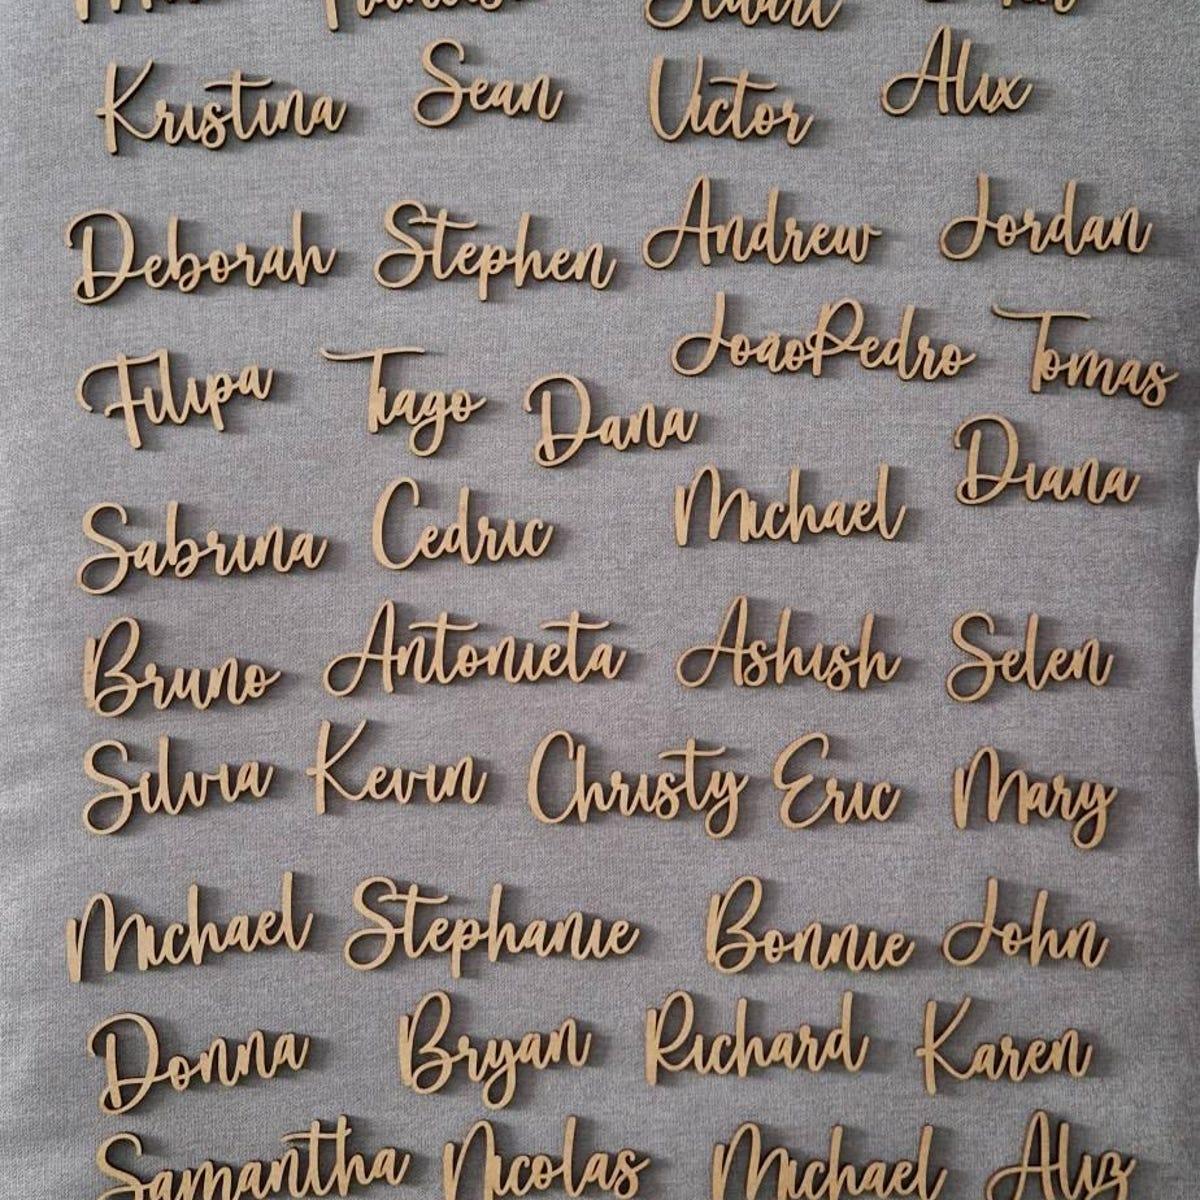 Stuart
Kristina Sean Victor Alix
Deborah Stephen Andrew Jordan
JoãoPedro Tomas
Filipa Tiago Dana
Diana
Sabrina Cedric Michael
Bruno Antonieta Ashish Selen
Silvia Kevin Christy Eric Mary
Michael Stephanie Bonnie John
Donna Bryan Richard Karen
Samantha Nicolas Michael Aliz